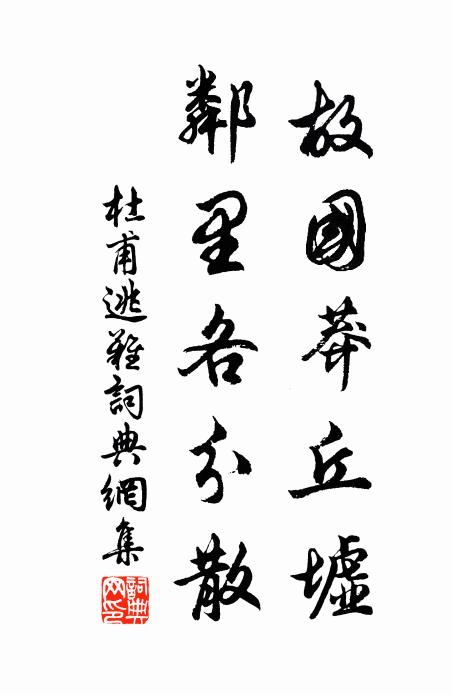 故國莽丘墟
鄰里各分散
杜甫逃難詞典網集
詞典網印